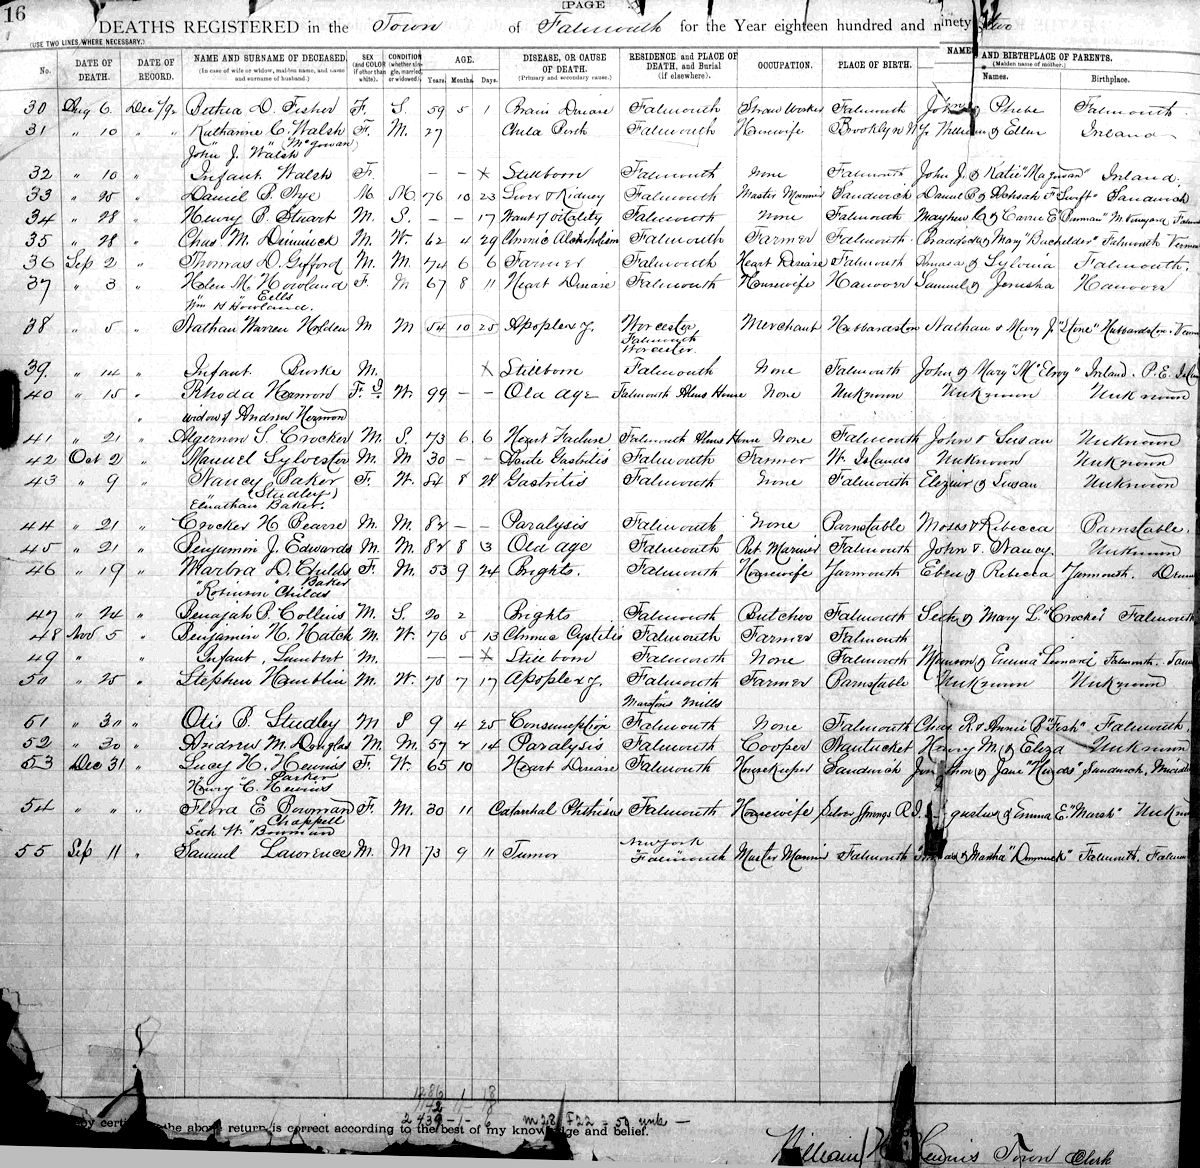 16
[PAGE
DEATHS REGISTERED in the Town of Falmouth for the Year eighteen hundred and ninety two
(USE TWO LINES, WHERE NECESSARY.)
No. DATE OF DEATH. DATE OF RECORD. NAME AND SURNAME OF DECEASED, (In case of wife or widow, maiden name, and name and surname of husband.) SEX (and COLOR if other than white). CONDITION (whether single, married, or widowed). AGE. Years. Months. Days. DISEASE, OR CAUSE OF DEATH. (Primary and secondary cause.) RESIDENCE and PLACE OF DEATH, and Burial (if elsewhere). OCCUPATION. PLACE OF BIRTH. NAMES AND BIRTHPLACE OF PARENTS. (Maiden name of mother.) Names. Birthplace.
30 Aug 6 Dec /92 Bethia D. Fisher F. S. 59 5 1 Brain Disease Falmouth Straw Worker Falmouth John & Phebe Falmouth
31 " 10 " " Katharine C. Walsh F. M. 27 Child Birth Falmouth Housewife Brooklyn N.Y. William & Ellen Ireland
" McGowan
John J. Walsh
32 " 10 " Infant Walsh F. – – × Stillborn Falmouth None Falmouth John J. & Katie "Magowan" Ireland
33 " 25 " Daniel B. Nye M. M. 76 10 23 Liver & Kidney Falmouth Master Mariner Sandwich Daniel B & F "Swift" Sandwich
34 " 28 " Henry P. Stuart M. S. – – 17 Want of vitality Falmouth None Falmouth Mayhew & Carrie E M. Vineyard
35 " 28 " Chas M. Dimmick M. W. 62 4 29 Chronic Alcoholism Falmouth Farmer Falmouth Braddock & Mary "Bachelder" Falmouth
36 Sep 2 " Thomas D. Gifford M. M. 74 6 6 Farmer Falmouth Heart Disease Falmouth & Sylvia Falmouth
37 " 3 " Helen M. Howland F. M 67 8 11 Heart Disease Falmouth Housewife Hanover Samuel & Jerusha Hanover
" Eells
Wm H Howland
38 " 5 " Nathan Warren Holden M M 54 10 25 Apoplexy. Worcester Merchant Hubbardston Nathan & Mary J. "Stone" Hubbardston
Falmouth
Worcester
39 " 14 " Infant Burke M. × Stillborn Falmouth None Falmouth John & Mary "McElroy" Ireland. P.E. Island
40 " 15 " Rhoda Hermon F. W. 99 – – Old age Falmouth Alms House None Unknown Unknown Unknown
" widow of Andrew Hermon
41 " 21 " Algernon S. Crocker M. S. 73 6 6 Heart Failure Falmouth Alms House None Falmouth John & Susan Unknown
42 Oct 2 " Manuel Sylvester M. M 30 – – Acute Gastritis Falmouth Farmer W. Islands Unknown Unknown
43 " 9 " Nancy Baker F. W. 84 8 28 Gastritis Falmouth None Falmouth & Susan Unknown
(Studley)
Elnathan Baker.
44 " 21 " Crocker H Pearse M. M. 82 – – Paralysis Falmouth None Barnstable Moses & Rebecca Barnstable.
45 " 21 " Benjamin J. Edwards M. M. 82 8 13 Old age Falmouth Ret Mariner Falmouth John & Nancy. Unknown
46 " 19 " D. Childs F. M. 53 9 24 Brights. Falmouth Housewife Yarmouth Eben & Rebecca Yarmouth.
" Baker
Robinson Childs
47 " 24 " Benajah P. Collins M. S. 20 2 Brights Falmouth Butcher Falmouth Seth & Mary L. "Crocker" Falmouth
48 Nov 5 " Benjamin H. Hatch M. W. 76 5 13 Chronic Cystitis Falmouth Farmer Falmouth
49 " " Infant, Lumbert M. – – × Stillborn Falmouth None Falmouth & Emma Leonard Falmouth.
50 " 25 " Stephen Hamblin M. W. 78 7 17 Apoplexy. Falmouth Farmer Barnstable Unknown Unknown
Marstons Mills
51 " 30 " Otis B. Studley M S 9 4 25 Consumption Falmouth None Falmouth Chas. R & Annie B "Fish" Falmouth.
52 " 30 " Andrew M. Douglas M. M. 57 2 14 Paralysis Falmouth Cooper Nantucket Henry M. & Eliza Unknown
53 Dec 31 " Lucy H. Hewins F. W. 65 10 Heart Disease Falmouth Housekeeper Sandwich & Jane Sandwich,
Parker
Henry C. Hewins
54 " " " Flora E Bowman F. M. 30 11 Catarrhal Phthisis Falmouth Housewife Silver Springs R.I. & Emma E. "Marsh"
" Chappell
Seth W. Bowman
55 Sep 11 " Samuel Lawrence M. M 73 9 11 Tumor New York Master Mariner Falmouth & Martha "Dimmick" Falmouth.
"Falmouth
1286 1 18
2439 – 1 – 6 M 28 F 22 = 50 unk –
by certify the above return is correct according to the best of my knowledge and belief.
William H. Hewins Town Clerk